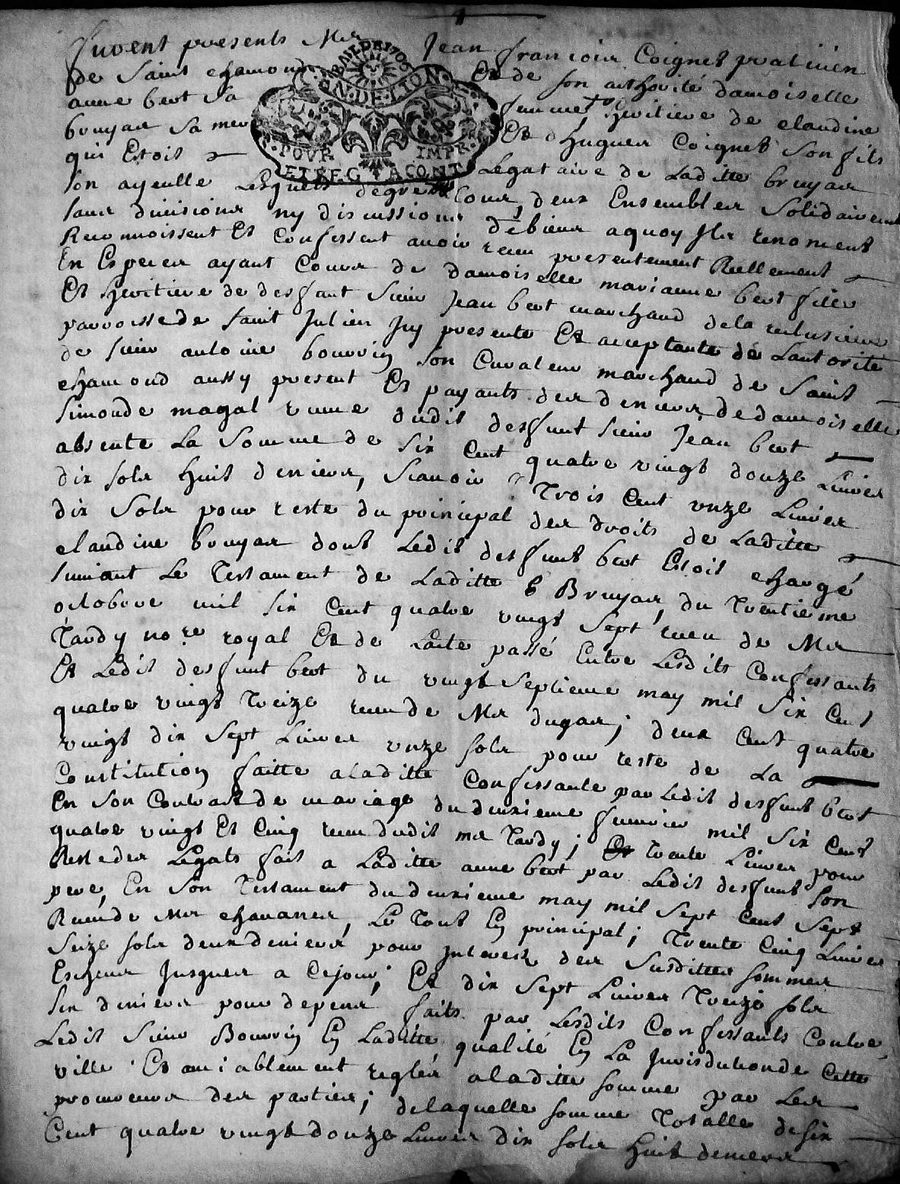 furent presents Mr Jean françois Coignet praticien
de Saint chamond Et de son authorité damoiselle
anne bert sa femme heritiere de claudine
bruyas sa mere Et d hugues Coignet son fils
qui Etoit legataire de laditte bruyas
son ayeulle Lesquels degré
sans divisions ny discussions deux Ensembles solidairement
Reconnoissent Et Confessent avoir debiens aquoy Ils renoncent
En Especes ayant Cours receu presentement Reellement
Et heritiere de deffunt sieur de damoiselle marianne bert fille
parroisse de saint Julien Jean bert marchand
de sieur antoine bouvrin Icy presente Et acceptante de Lautorité
chamond aussy present son Curateur marchand de Saint
Simonde magal veuve Et payants des deniers de damoiselle
absente La somme de dudit deffunt sieur Jean bert
dix sols huit deniers, scavoir six Cent quatre vingt douze Livres
dix sols pour reste du principal Trois Cent unze Livres
claudine bruyas dont Ledit des droits de Laditte
suivant Le Testament de Laditte deffunt bert Etoit chargé
octobre mil six Cent quatre vingt Bruyas du Trentieme
Tardy nore royal Et de Lacte sept receu de Mr
Et Ledit deffunt bert du passé Entre Lesdits Confessants
quatre vingt Treize receu de vingt septieme may mil six Cent
vingt dix sept Livres Mr dugas; deux Cent quatre
Constitution faitte a laditte unze sols pour reste de La
En son Contrat de mariage Confessante par Ledit deffunt bert
quatre vingt Et Cinq receu dudit du deuxieme fevrier mil six Cent
Reste des Legats fait a Laditte mr Tardy; Trente Livres pour
pere, En son Testament anne bert par Ledit deffunt son
Receu de Mr chavanes, du deuxieme may mil sept Cent sept
seize sols deux deniers Le Tout En principal; Trente Cinq Livres
Escheus Jusques a Cejour; pour Interests des susdittes sommes
six deniers pour depens Et dix sept Livres Treize sols
Ledit sieur Bouvrin faits par Lesdits Confessants Contre
ville Et amiablement En Laditte qualité En La Jurisdiction de Cette
procureurs des parties; reglés a laditte somme par Les
Cent quatre vingt douze Livres delaquelle somme Totalle de six
dix sols huit deniers
G.N.DE.LION
POUR IMPR